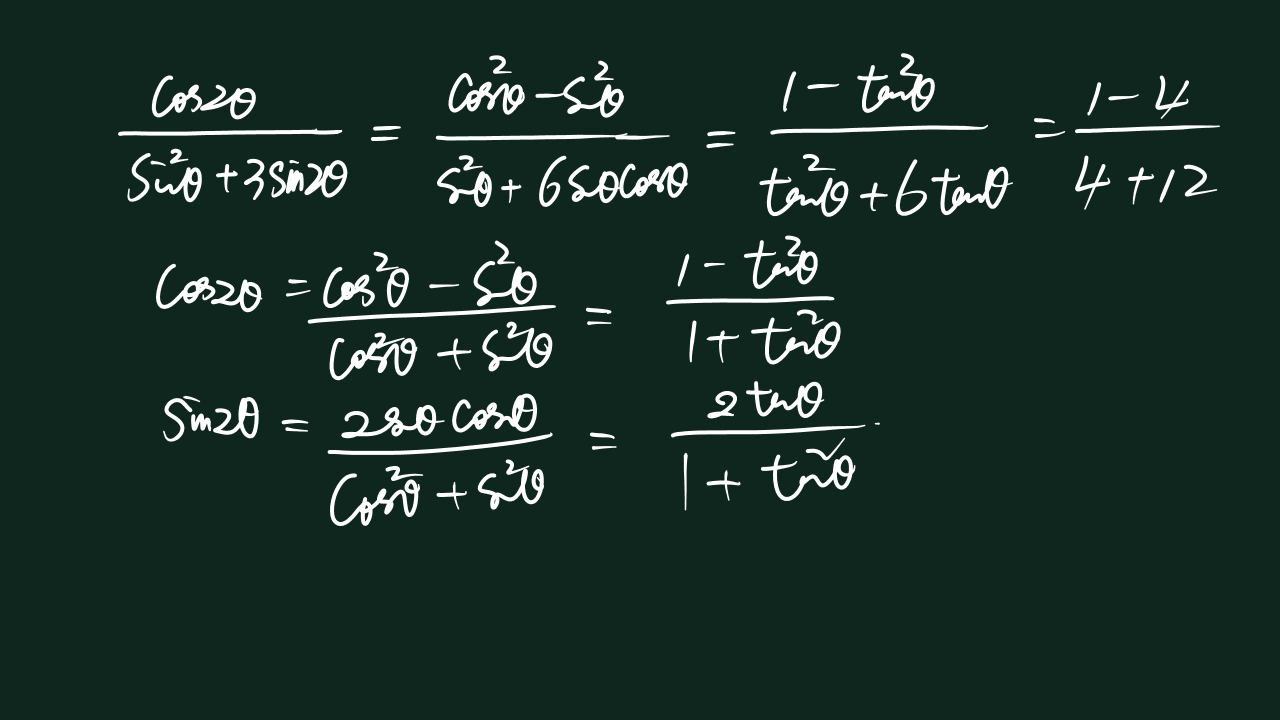 cos2θ/(sin²θ+3sin2θ) = (cos²θ-s²θ)/(s²θ+6sθcosθ) = (1-tan²θ)/(tan²θ+6tanθ) = (1-4)/(4+12)
cos2θ = (cos²θ-s²θ)/(cos²θ+s²θ) = (1-tan²θ)/(1+tan²θ)
sin2θ = (2sθcosθ)/(cos²θ+s²θ) = (2tanθ)/(1+tan²θ)